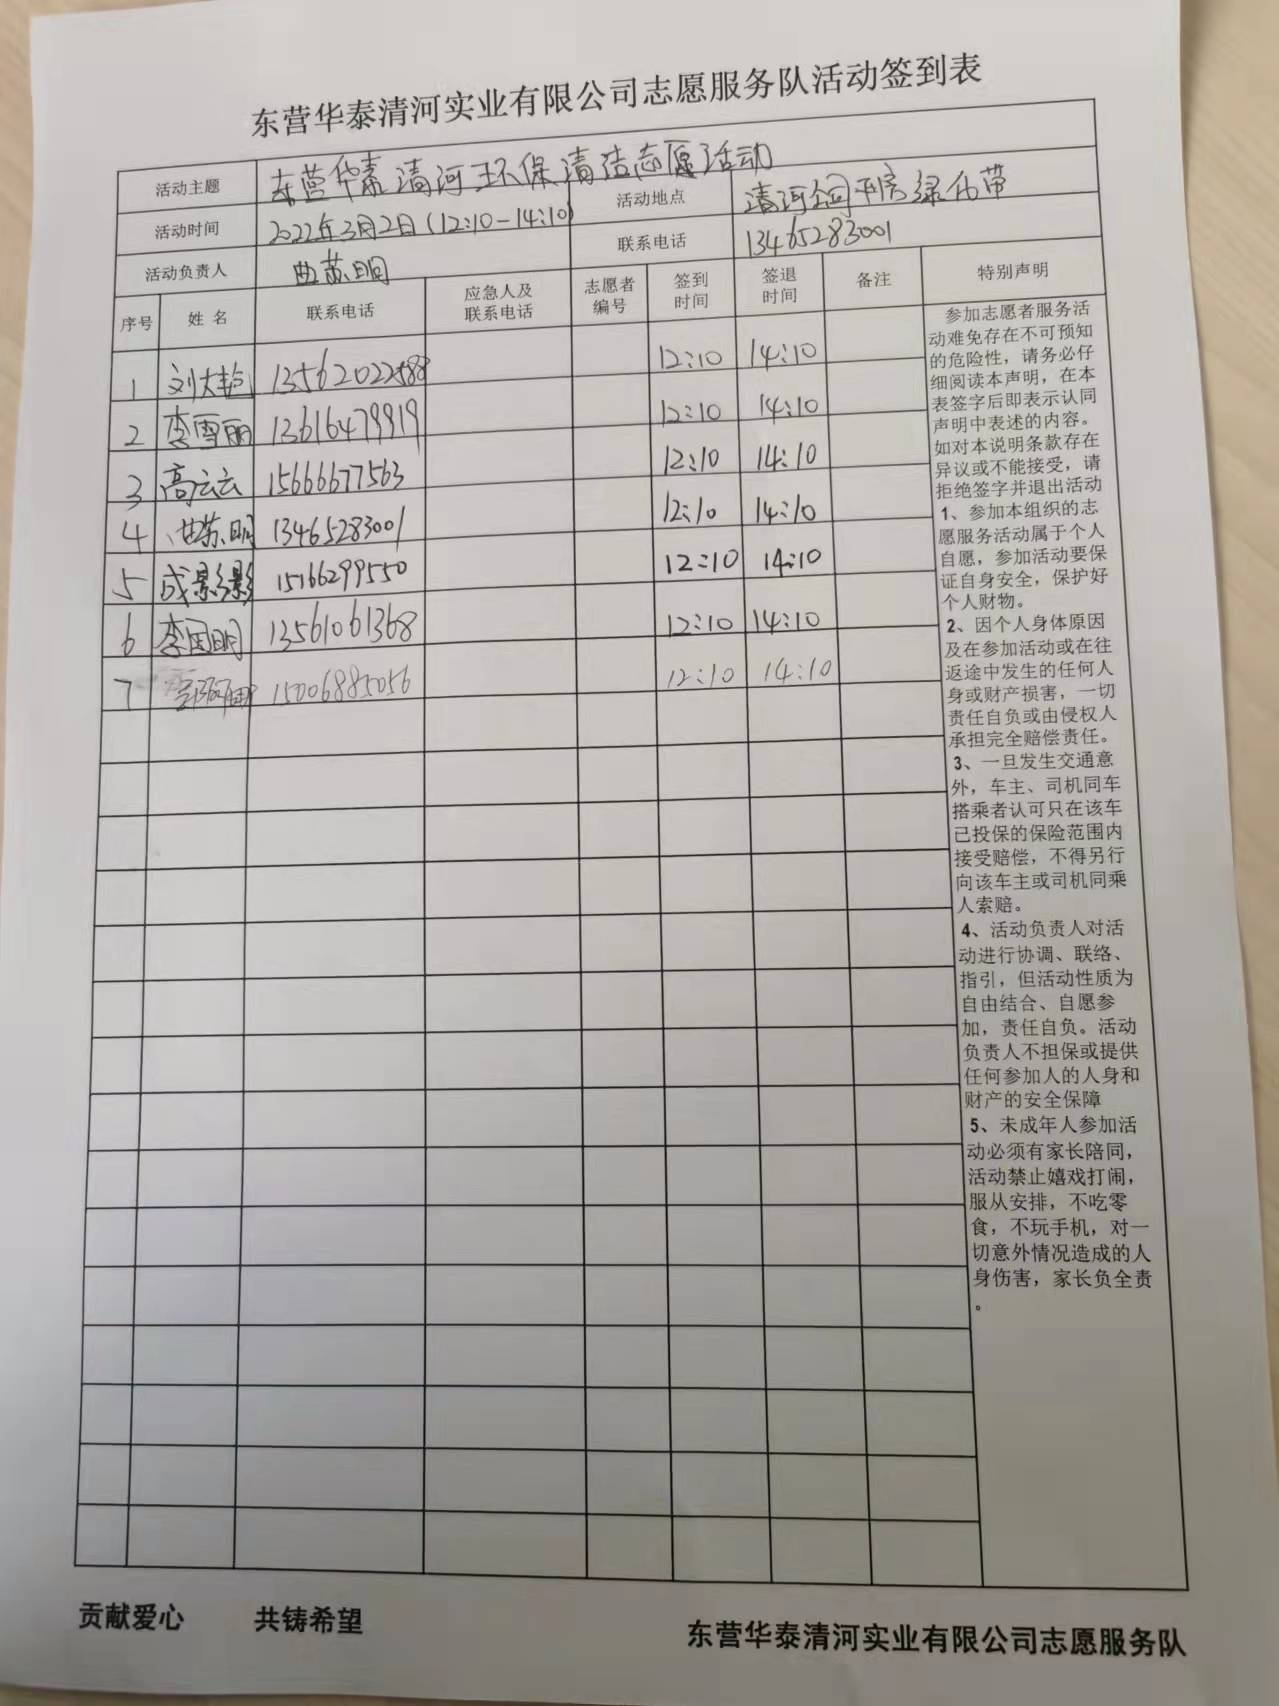 东营华泰清河实业有限公司志愿服务队活动签到表
活动主题 东营华泰清河环保清洁志愿活动
活动时间 2022年3月2日(12:10-14:10) 活动地点 清河公司平房绿化带
活动负责人 曲苏明 联系电话 13465283001
序号 姓 名 联系电话 应急人及联系电话 志愿者编号 签到时间 签退时间 备注 特别声明
1 刘大艳 12:10 14:10
2 李雪丽 13616479919 12:10 14:10
3 高云云 15666677563 12:10 14:10
4 曲苏明 13465283001 12:10 14:10
5 成影影 15166299550 12:10 14:10
6 李国明 13561061368 12:10 14:10
7 15006885056 12:10 14:10
参加志愿者服务活
动难免存在不可预知
的危险性，请务必仔
细阅读本声明，在本
表签字后即表示认同
声明中表述的内容。
如对本说明条款存在
异议或不能接受，请
拒绝签字并退出活动
1、参加本组织的志
愿服务活动属于个人
自愿，参加活动要保
证自身安全，保护好
个人财物。
2、因个人身体原因
及在参加活动或在往
返途中发生的任何人
身或财产损害，一切
责任自负或由侵权人
承担完全赔偿责任。
3、一旦发生交通意
外，车主、司机同车
搭乘者认可只在该车
已投保的保险范围内
接受赔偿，不得另行
向该车主或司机同乘
人索赔。
4、活动负责人对活
动进行协调、联络、
指引，但活动性质为
自由结合、自愿参
加，责任自负。活动
负责人不担保或提供
任何参加人的人身和
财产的安全保障
5、未成年人参加活
动必须有家长陪同，
活动禁止嬉戏打闹，
服从安排，不吃零
食，不玩手机，对一
切意外情况造成的人
身伤害，家长负全责
。
贡献爱心 共铸希望 东营华泰清河实业有限公司志愿服务队